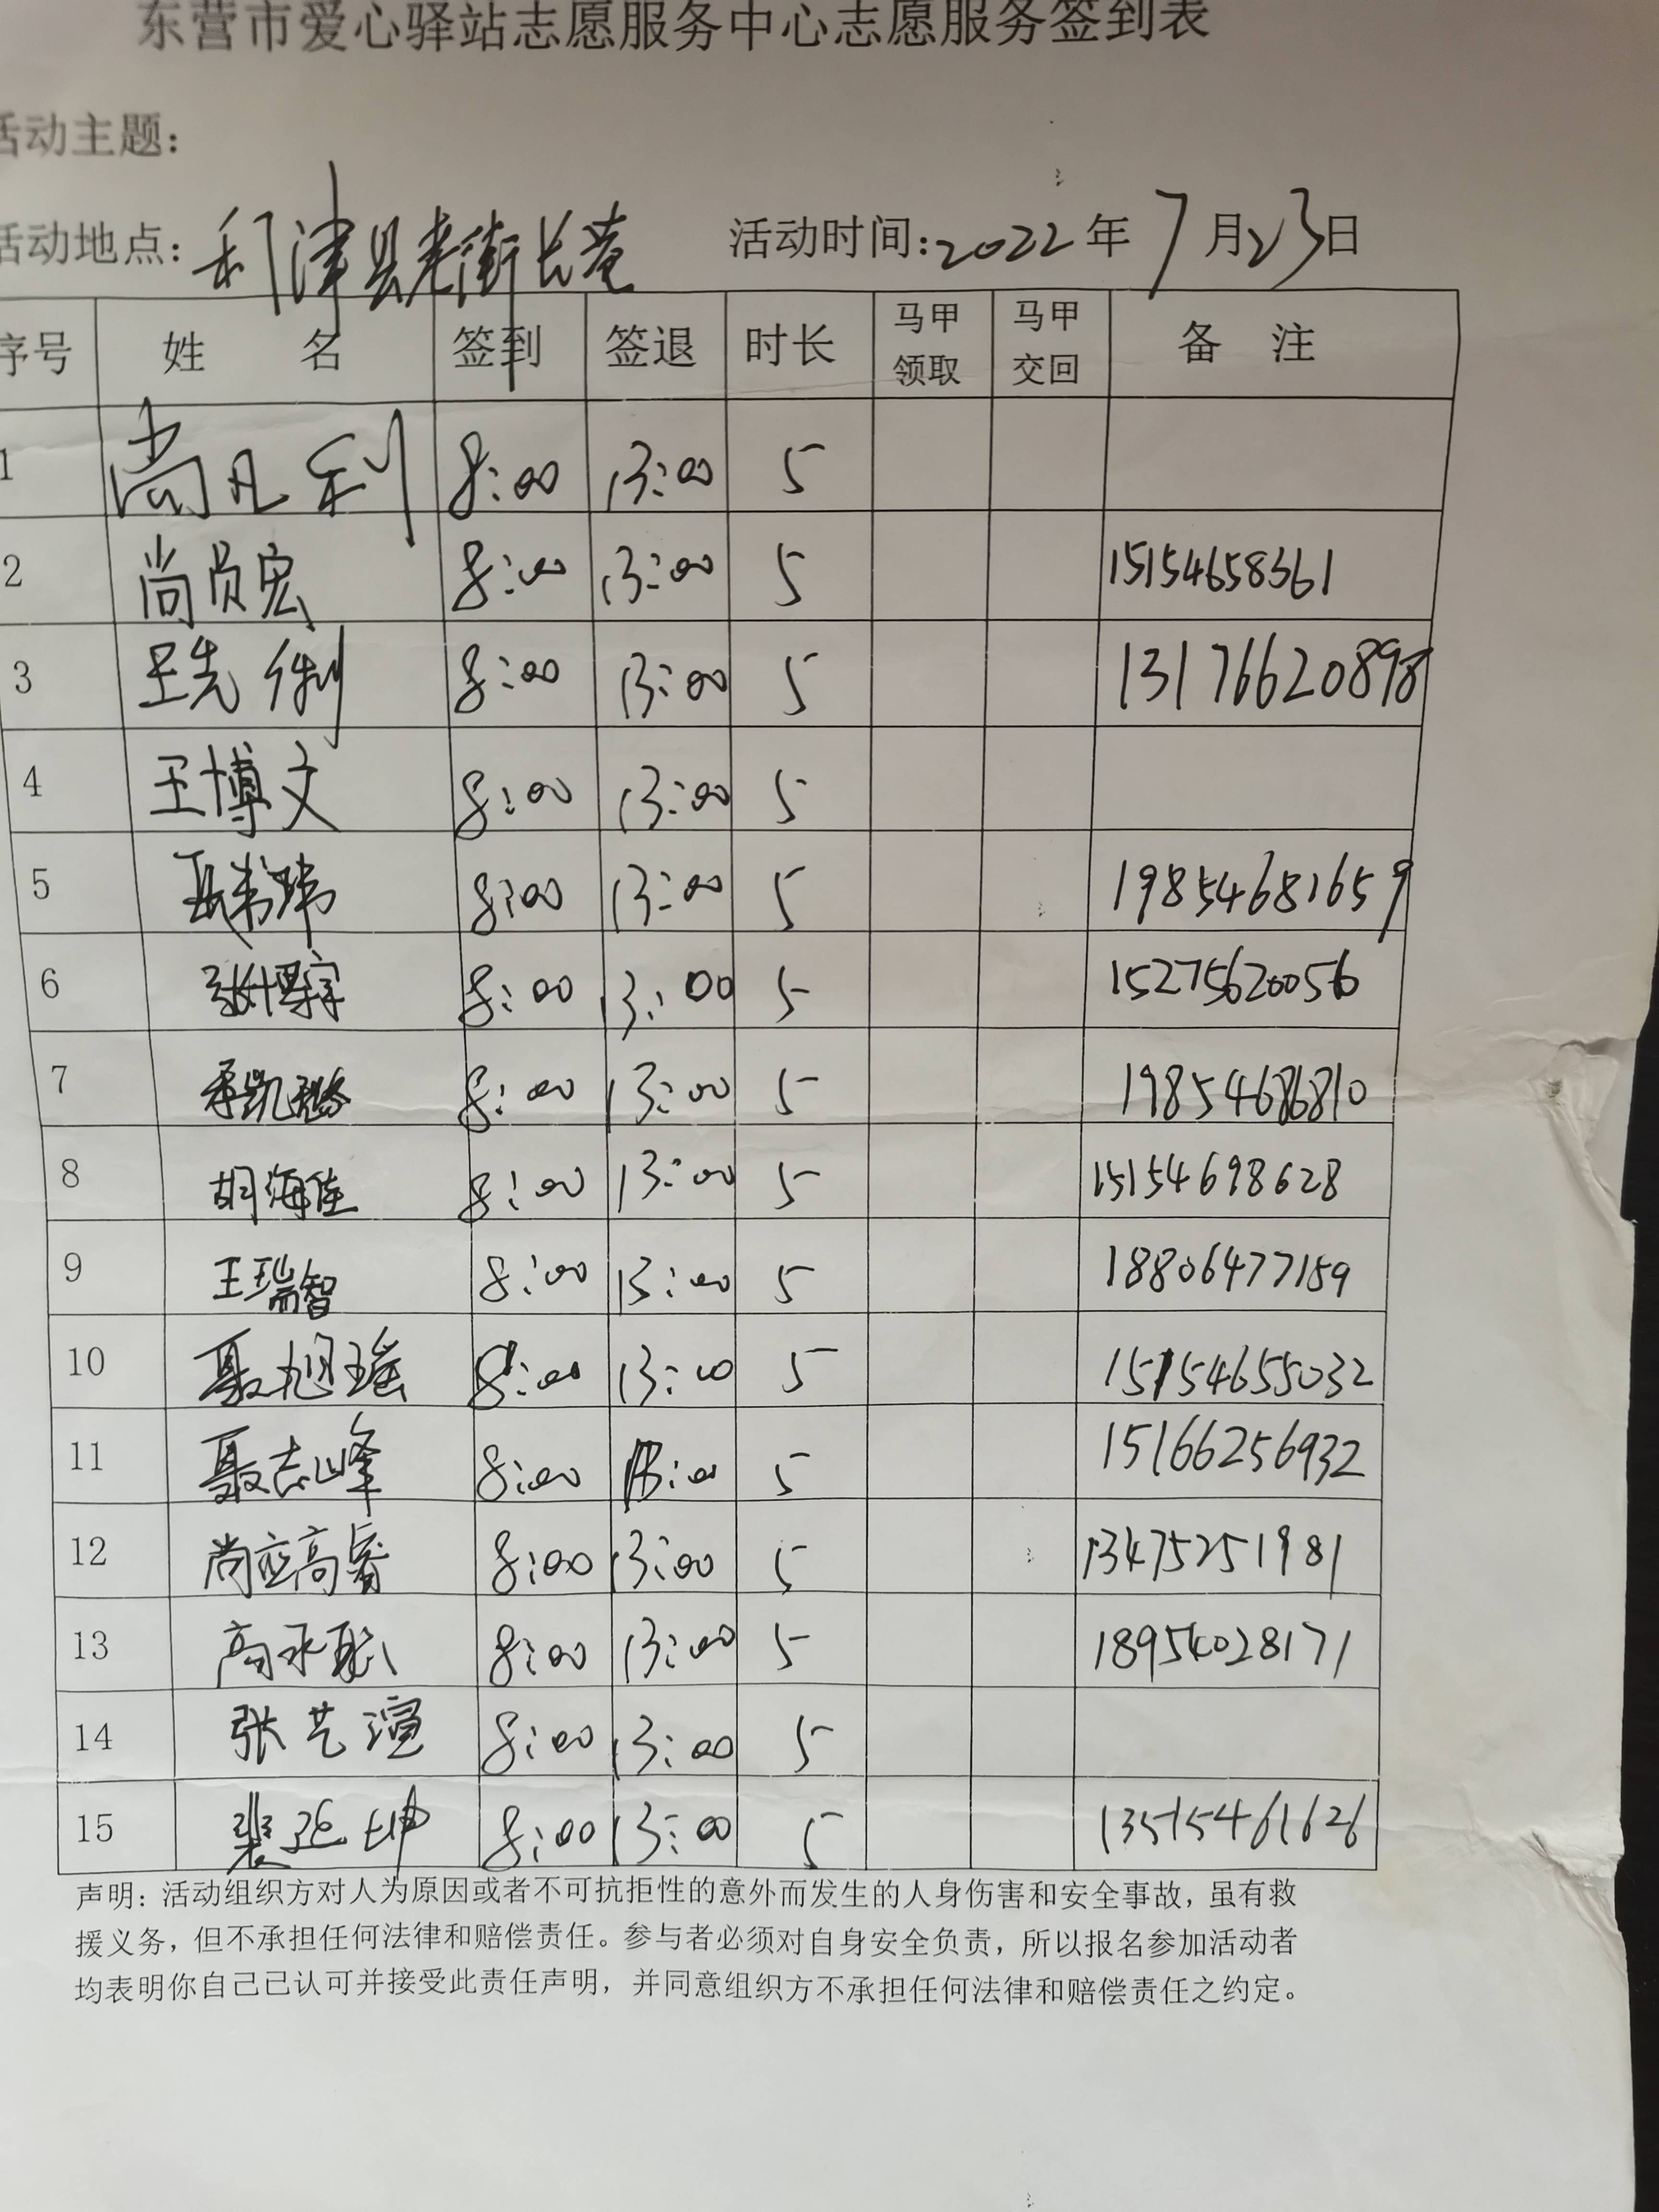 东营市爱心驿站志愿服务中心志愿服务签到表
活动主题：
活动地点：利津县老街长巷 活动时间：2022年7月23日
序号 姓名 签到 签退 时长 马甲领取 马甲交回 备注
1 尚凡利 8:00 13:00 5
2 尚贞宏 8:00 13:00 5 15154658361
3 王先俐 8:00 13:00 5 13176620898
4 王博文 8:00 13:00 5
5 8:00 13:00 5 19854681659
6 8:00 13:00 5 15275620056
7 8:00 13:00 5 19854686810
8 胡海佳 8:00 13:00 5 15154698628
9 王瑞智 8:00 13:00 5 18806477159
10 聂旭瑶 8:00 13:00 5 15154655032
11 聂志峰 8:00 13:00 5 15166256932
12 尚应高睿 8:00 13:00 5 13475251981
13 高永聪 8:00 13:00 5 18954028171
14 张艺渲 8:00 13:00 5
15 裴延坤 8:00 13:00 5 13515461626
声明：活动组织方对人为原因或者不可抗拒性的意外而发生的人身伤害和安全事故，虽有救
援义务，但不承担任何法律和赔偿责任。参与者必须对自身安全负责，所以报名参加活动者
均表明你自己已认可并接受此责任声明，并同意组织方不承担任何法律和赔偿责任之约定。